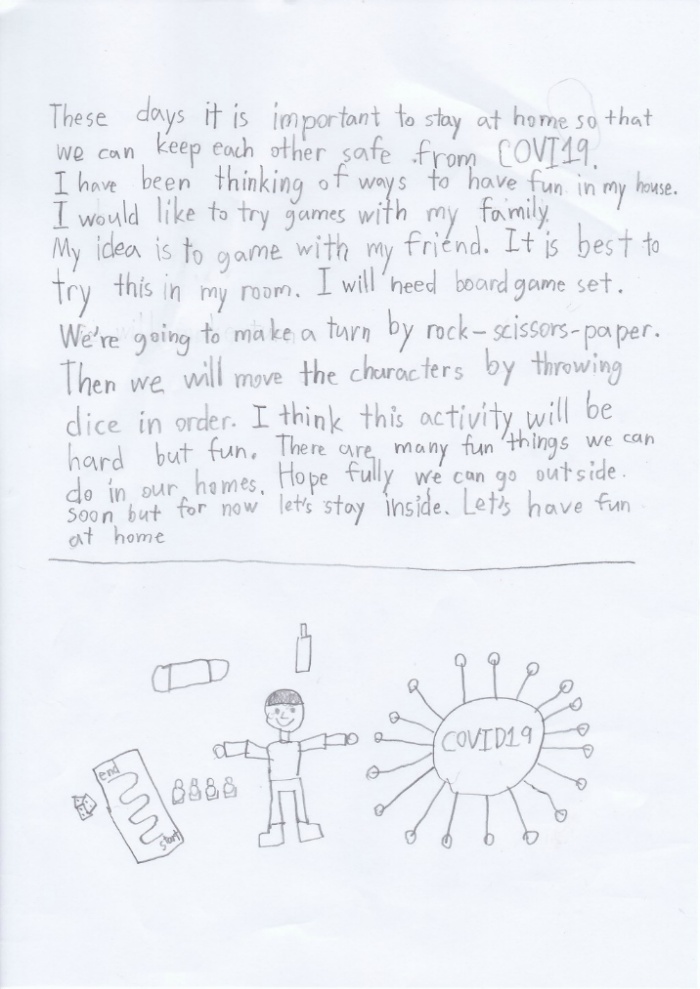 These days it is important to stay at home so that
we can keep each other safe from COVI19.
I have been thinking of ways to have fun in my house.
I would like to try games with my family.
My idea is to game with my friend. It is best to
try this in my room. I will need board game set.
We're going to make a turn by rock-scissors-paper.
Then we will move the characters by throwing
dice in order. I think this activity will be
hard but fun. There are many fun things we can
do in our homes. Hope fully we can go outside.
soon but for now let's stay inside. Let's have fun
at home
COVID19
end
start